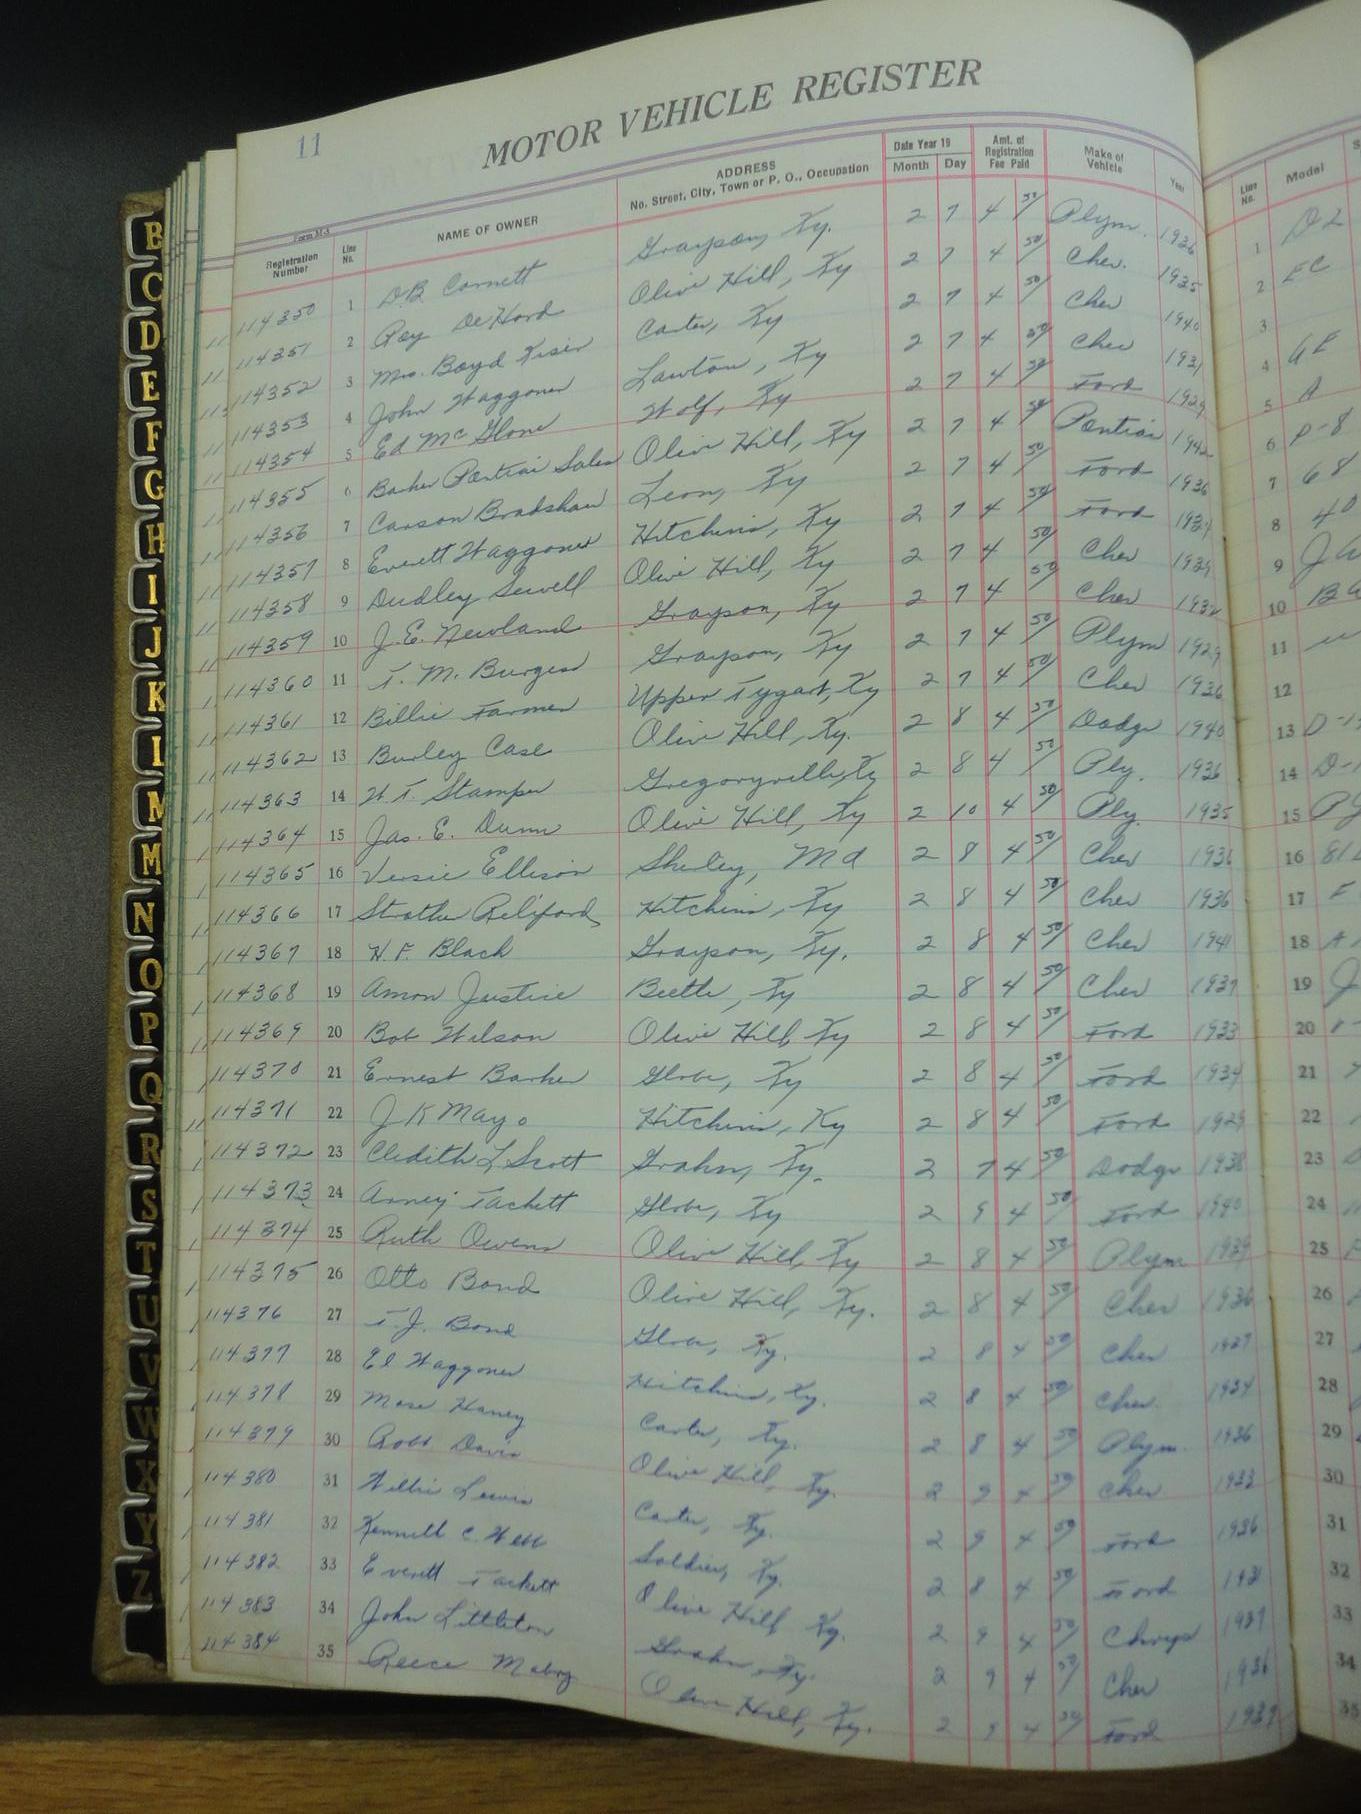 11
MOTOR VEHICLE REGISTER
Registration Number Line No. NAME OF OWNER ADDRESS No. Street, City, Town or P. O., Occupation Date Year 19 Month Day Amt. of Registration Fee Paid Make of Vehicle Year Line No. Model
114350 1 D.B. Cornett Grayson, Ky. 2 7 4 50 Plym. 1936 1 D2
114351 2 Roy DeHord Olive Hill, Ky 2 7 4 50 Chev. 1935 2 EC
114352 3 Mrs. Boyd Kiser Carter, Ky 2 7 4 50 Chev 1940 3
114353 4 John Waggoner Lawton, Ky 2 7 4 50 Chev 1931 4
114354 5 Ed McGlone Wolf, Ky 2 7 4 50 Ford 1929 5 A
114355 6 Barker Pontiac Sales Olive Hill, Ky 2 7 4 50 Pontiac 1942 6 P-8
114356 7 Carson Bradshaw Leon, Ky 2 7 4 50 Ford 1936 7 68
114357 8 Everett Waggoner Hitchins, Ky 2 7 4 50 Ford 1934 8 40
114358 9 Dudley Sewell Olive Hill, Ky 2 7 4 50 Chev 1939 9
114359 10 J.E. Newland Grayson, Ky 2 7 4 50 Chev 1932 10
114360 11 T. M. Burgess Grayson, Ky 2 7 4 50 Plym 1929 11
114361 12 Billie Farmer Upper Tygart, Ky 2 7 4 50 Chev 1936 12
114362 13 Burley Case Olive Hill, Ky. 2 8 4 50 Dodge 1940 13
114363 14 W. T. Stamper Gregoryville, Ky 2 8 4 50 Ply. 1936 14
114364 15 Jas. E. Dunn Olive Hill, Ky 2 10 4 50 Ply. 1935 15
114365 16 Versie Ellison Shirley, Md 2 8 4 50 Chev 1936 16
114366 17 Hitchins, Ky 2 8 4 50 Chev 1936 17
114367 18 H. F. Black Grayson, Ky. 2 8 4 50 Chev 1941 18
114368 19 Amon Justice Beetle, Ky 2 8 4 50 Chev 1937 19
114369 20 Bob Wilson Olive Hill, Ky 2 8 4 50 Ford 1933 20
114370 21 Ernest Barker Globe, Ky 2 8 4 50 Ford 1934 21
114371 22 J K Mayo Hitchins, Ky 2 8 4 50 Ford 1929 22
114372 23 Cledith L Scott Grahn, Ky. 2 7 4 50 Dodge 1938 23
114373 24 Arney Tackett Globe, Ky 2 9 4 50 Ford 1940 24
114374 25 Ruth Owens Olive Hill, Ky 2 8 4 50 Plym 1939 25
114375 26 Otto Bond Olive Hill, Ky. 2 8 4 50 Chev 1936 26
114376 27 T.J. Bond Globe, Ky. 2 8 4 50 Chev 1937 27
114377 28 El Waggoner Hitchins, Ky. 2 8 4 50 Chev. 1934 28
114378 29 Mose Haney Carter, Ky. 2 8 4 50 Plym. 1936 29
114379 30 Robt Davis Olive Hill, Ky. 2 9 4 50 Chev 1933 30
114380 31 Willie Lewis Carter, Ky. 2 9 4 50 Ford 1936 31
114381 32 Kennett C. Webb Soldier, Ky. 2 8 4 50 Ford 1931 32
114382 33 Everett Tackett Olive Hill Ky. 2 9 4 50 Chrys 1937 33
114383 34 John Littleton Grahn, Ky. 2 9 4 50 Chev 1936 34
114384 35 Reece Mabry Olive Hill, Ky. 2 9 4 50 Ford 1937 35
B
C
D
E
F
G
H
I
J
K
L
M
M
N
O
P
Q
R
S
T
U
V
W
X
Y
Z